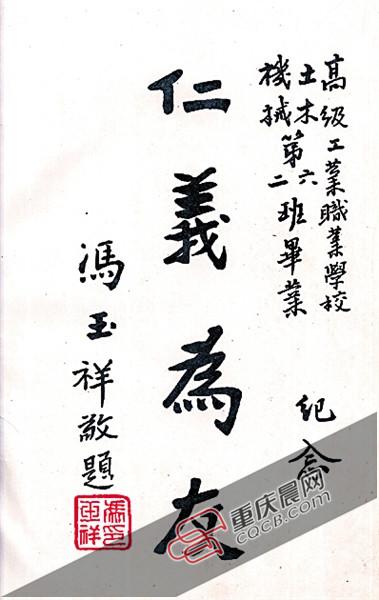 高級工業職業學校
土木第六
機械第二班畢業
紀念
仁義為友
馮玉祥敬題
馮印玉祥
重庆晨网
CQCB.COM